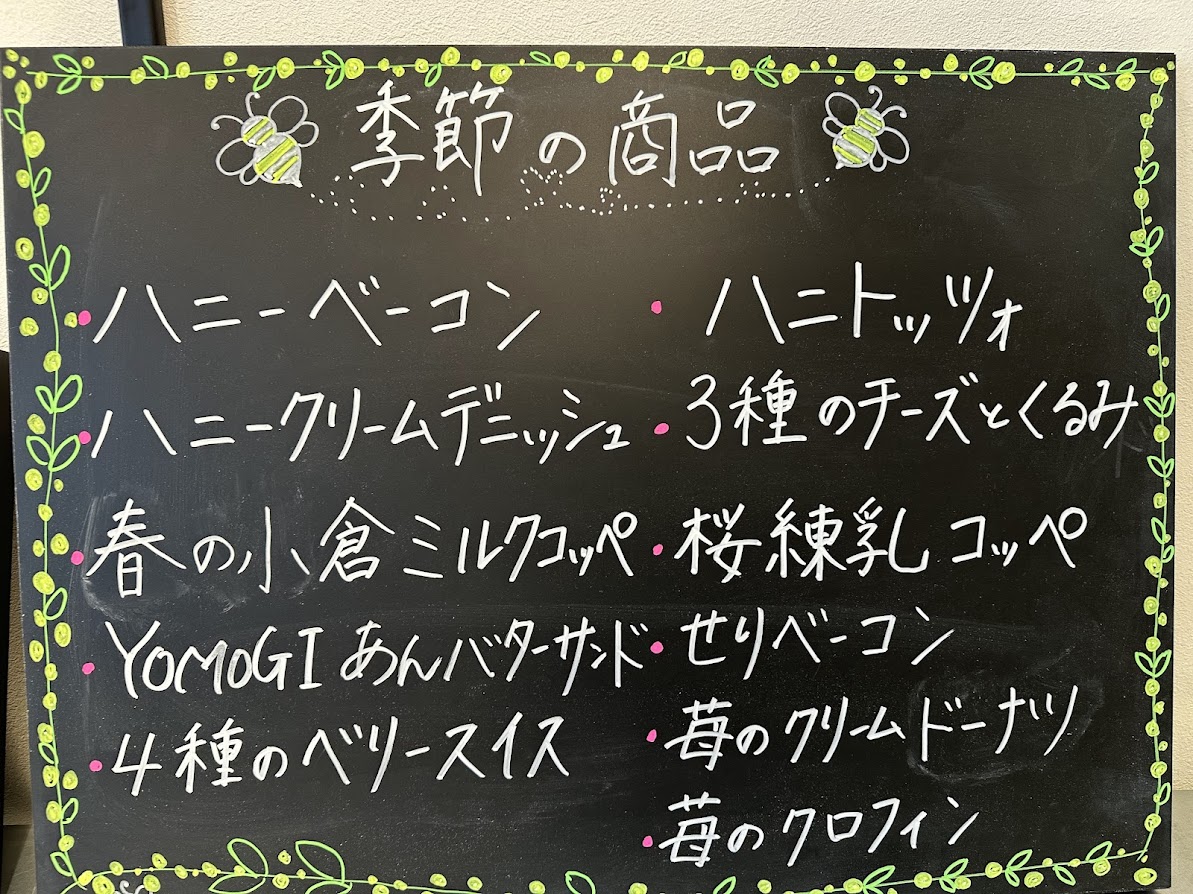 季節の商品
・ハニーベーコン
・ハニークリームデニッシュ
・春の小倉ミルクコッペ
・YOMOGIあんバターサンド
・4種のベリースイス
・ハニトッツォ
・3種のチーズとくるみ
・桜練乳コッペ
・せりベーコン
・苺のクリームドーナツ
・苺のクロフィン